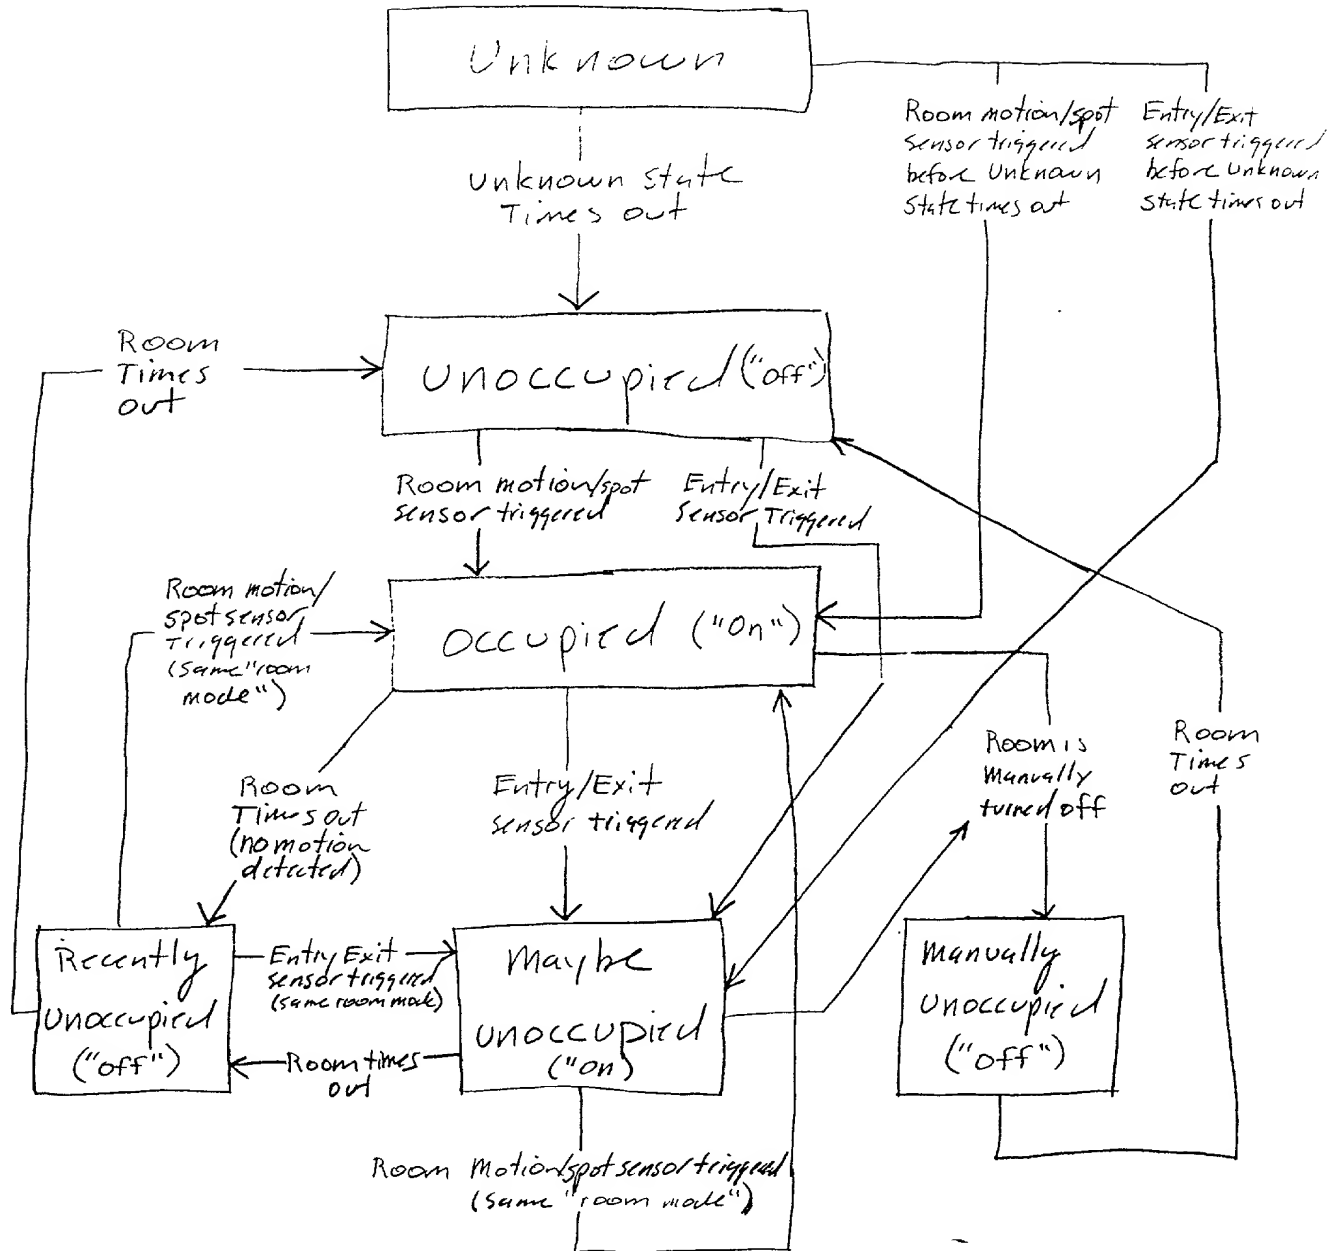 Unknown
Room motion/spot
sensor triggered
before Unknown
State times out
Entry/Exit
sensor triggered
before Unknown
State times out
Unknown state
Times out
Room
Times
out
Unoccupied ("off")
Room motion/spot
sensor triggered
Entry/Exit
Sensor Triggered
Room motion/
spot sensor
Triggered
(same "room
mode")
Occupied ("On")
Room
Times out
(no motion
detected)
Entry/Exit
sensor triggered
Room is
Manually
turned off
Room
Times
out
Recently
Unoccupied
("off")
Entry Exit
sensor triggered
(same room mode)
Room times
out
Maybe
unoccupied
("on)
Manually
Unoccupied
("off")
Room Motion/spot sensor triggered
(same "room mode")